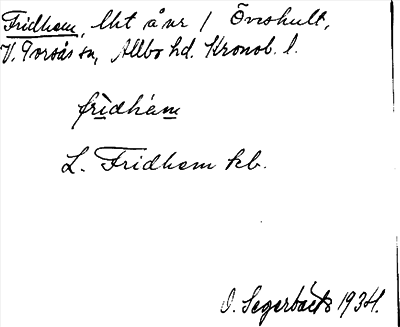 Fridhem, lht å nr 1 Övershult,
V. Torsås sn, Allbo hd. Kronob. l.
frìdhém
L. Fridhem kb.
D. Segerbäck 1934.